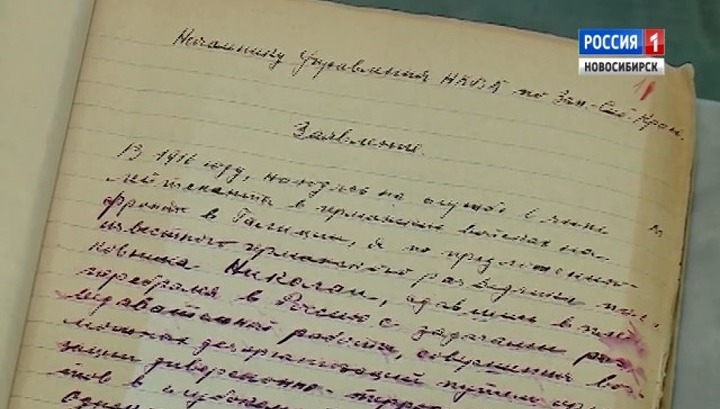 РОССИЯ 1
НОВОСИБИРСК
Начальнику Управления НКВД по Зап-Сиб-Краю.
Заявление.
В 1916 году, находясь на службе в чине
лейтенанта в германских войсках на
фронте в Галиции, я по предложению
известного германского разведчика пол-
ковника Николаи, сдавшись в плен
пробрался в Россию с задачами раз-
ведывательной работы, совершения
дезорганизации путем
диверсионно-